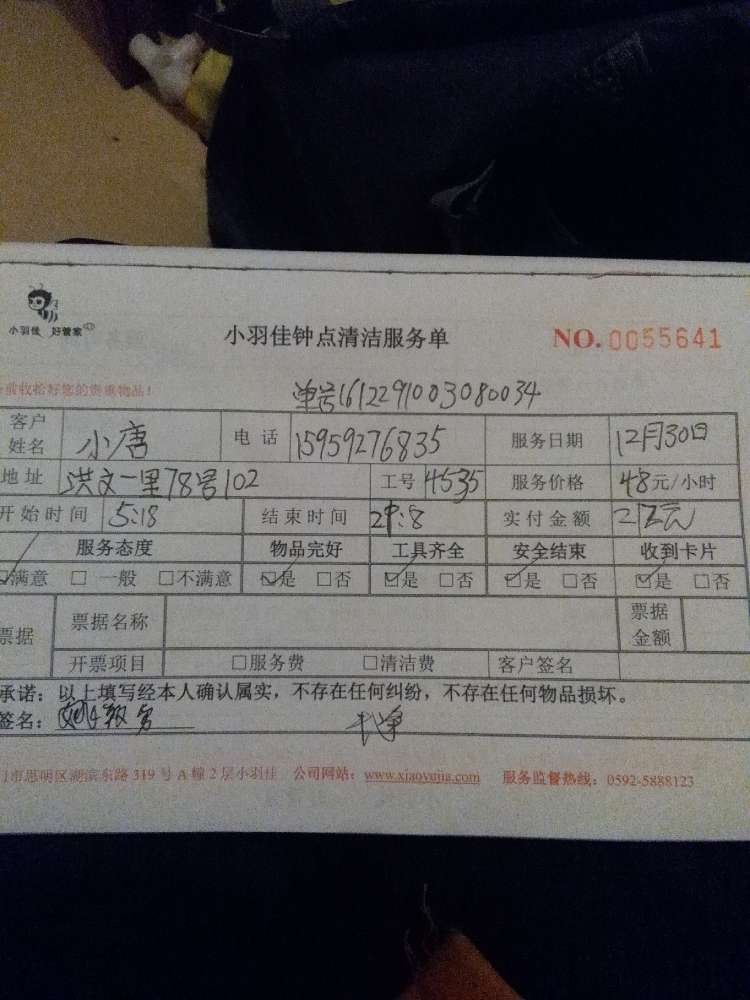 小羽佳 好管家
小羽佳钟点清洁服务单 NO.0055641
前收松好您的贵重物品！ 单号1612291003080034
客户姓名 小唐 电话 15959276835 服务日期 12月30日
地址 洪文一里78号102 工号 4535 服务价格 48元/小时
开始时间 5:18 结束时间 实付金额
服务态度 物品完好 工具齐全 安全结束 收到卡片
满意 □ 一般 □不满意 是 □否 是 □否 是 □否 是 □否
票据 票据名称 票据金额
开票项目 □服务费 □清洁费 客户签名
承诺：以上填写经本人确认属实，不存在任何纠纷，不存在任何物品损坏。
签名：
门市思明区湖滨东路 319 号 A 幢 2 层小羽佳 公司网站：www.xiaoyujia.com 服务监督热线：0592-5888123